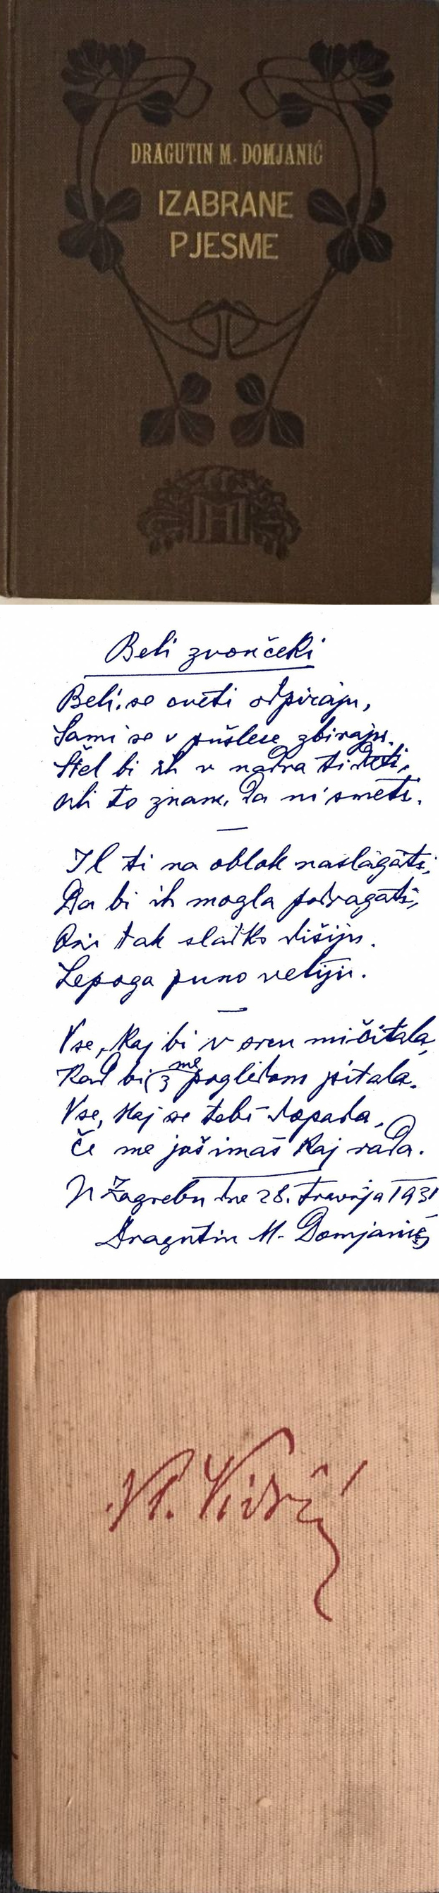 DRAGUTIN M. DOMJANIĆ
IZABRANE
PJESME
Beli zvončeki
Beli se cveti odpiraju,
Sami se v pušlece zbiraju.
Štel bi ih v nadra ti deti,
ali to znam, da ni smeti.
Il ti na oblok naslagati,
Da bi ih mogla podragati,
Oni tak slatko dišiju.
Lepoga puno vetiju.
Vse, kaj bi v srcu mi čitala,
Kad bi z pogledom me pitala.
Vse, kaj se tebi dopada,
Če me još imaš kaj rada.
U Zagrebu dne 28. travnja 1931
Dragutin M. Domjanić
Vl. Vidrić